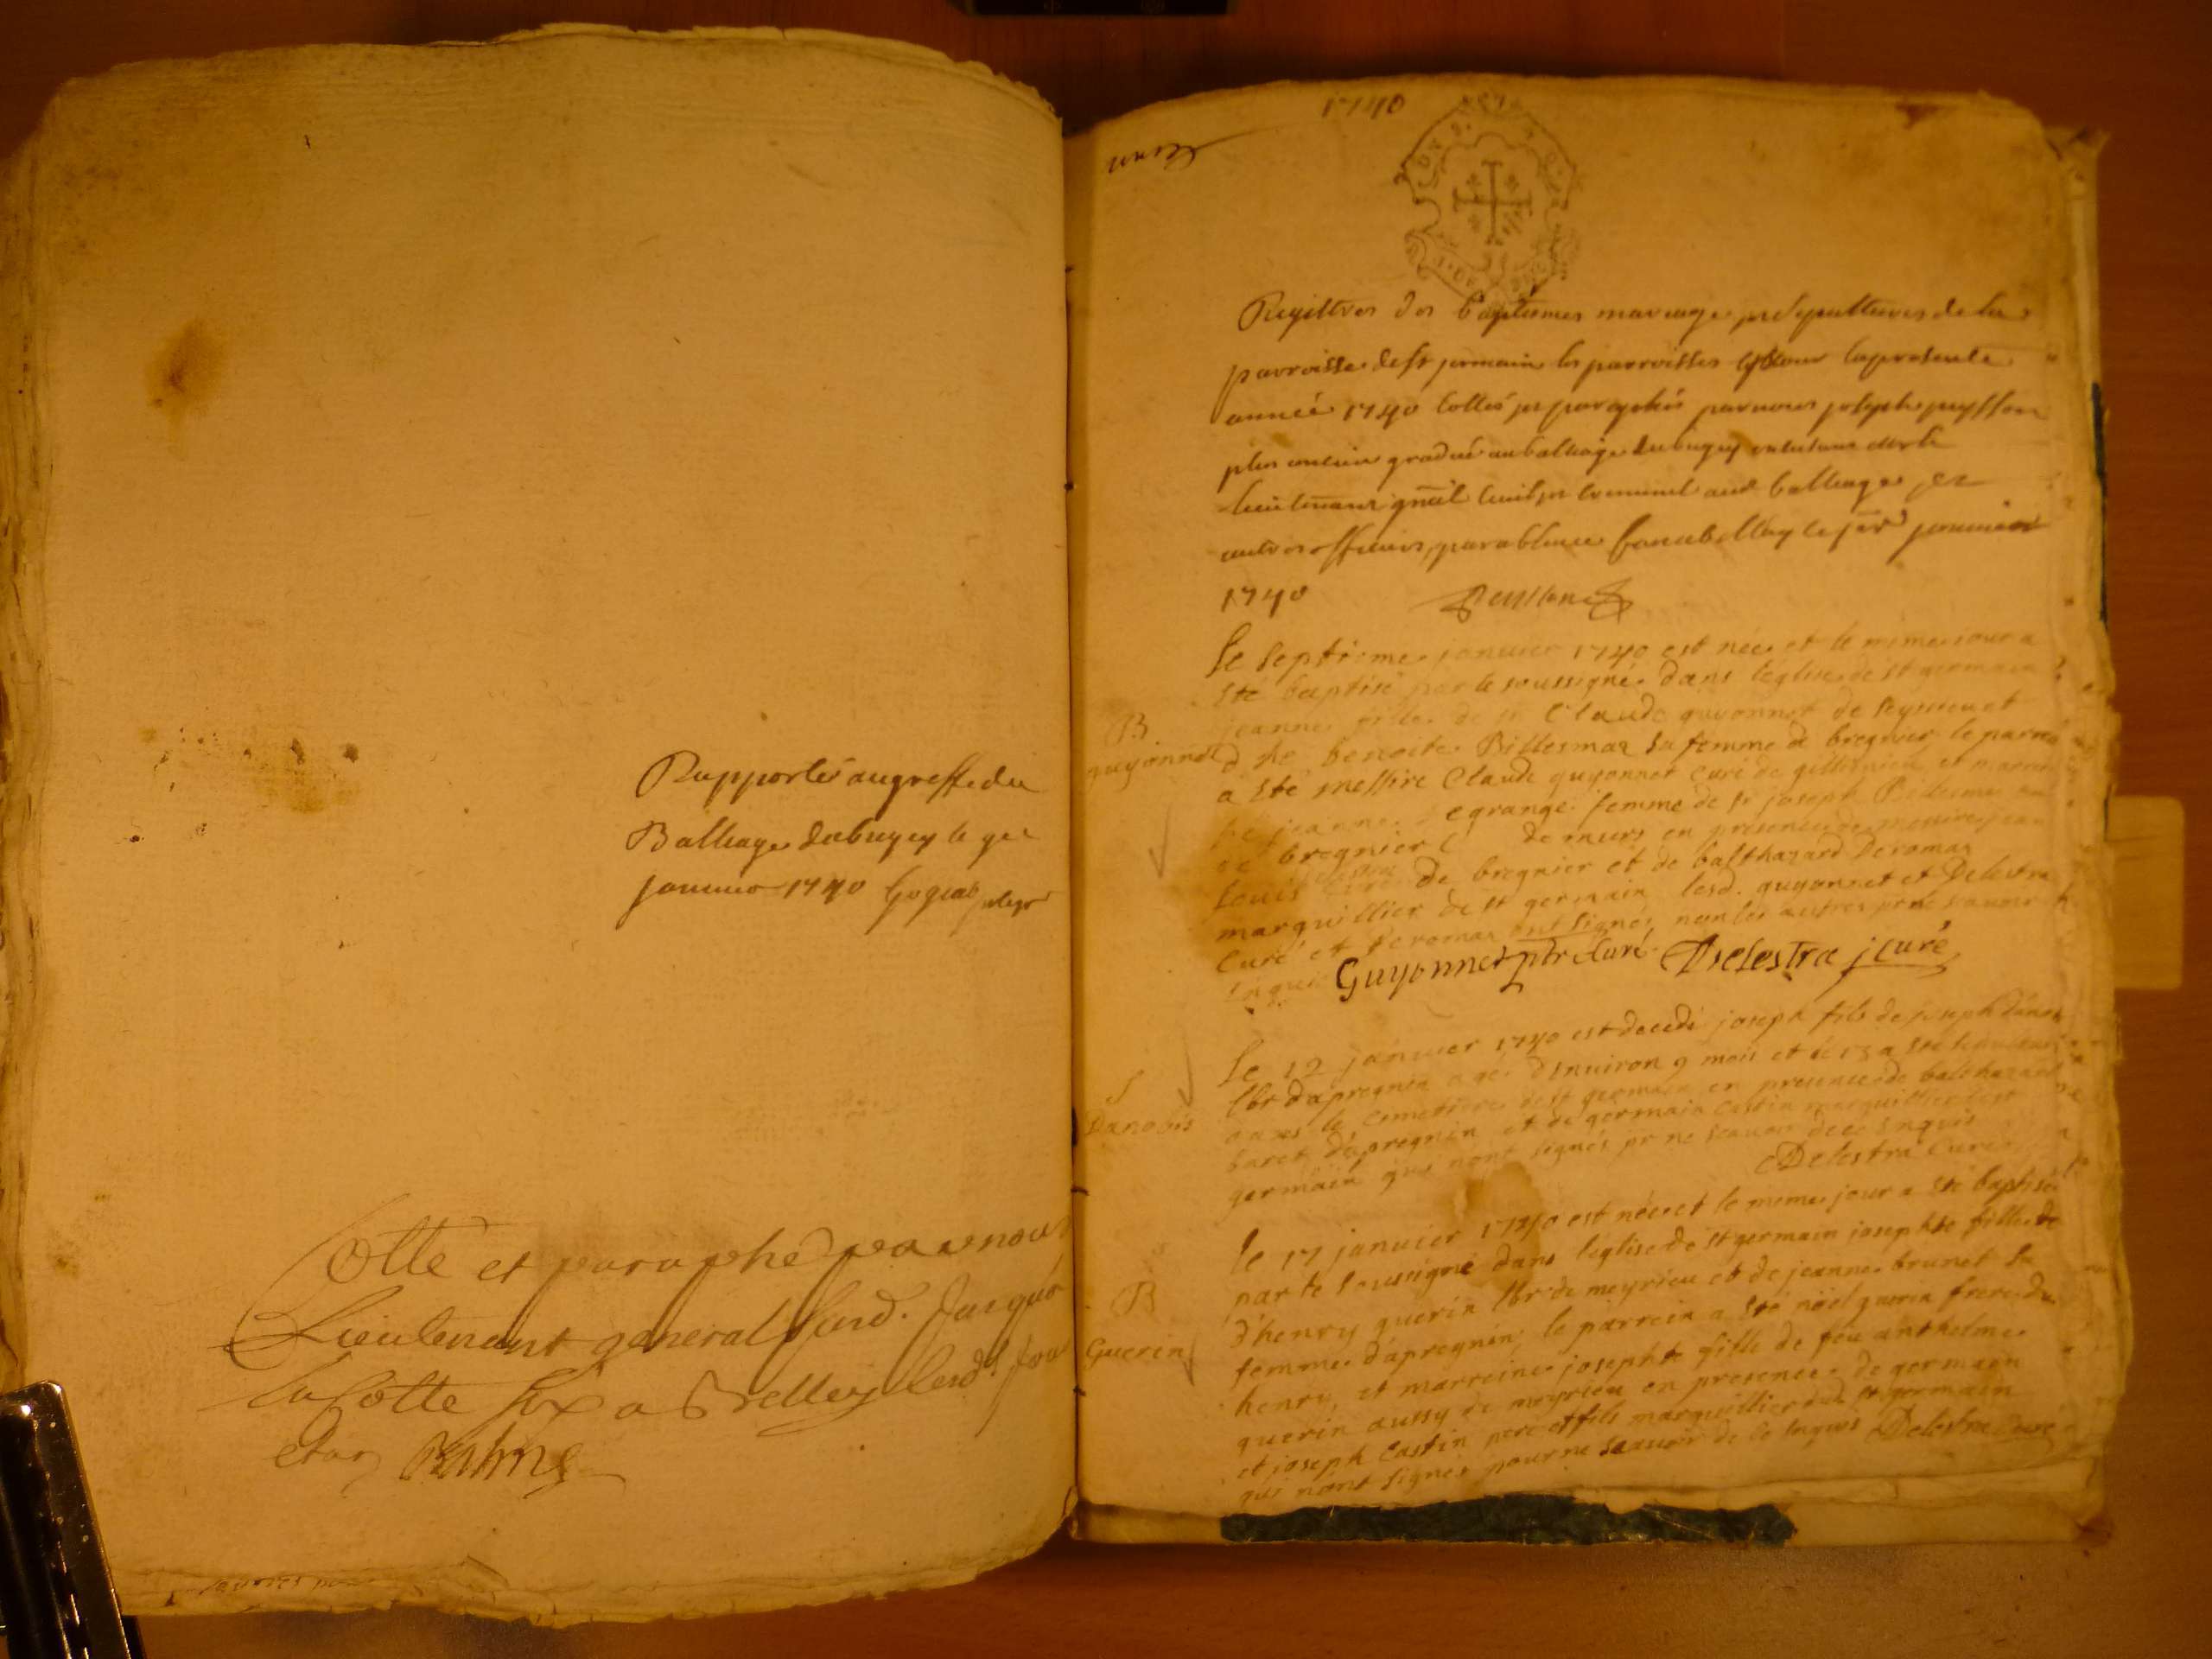 Rapportés au greffe du
Balliage du bugey le
Janvier 1740
Cotté et paraphé par nous
Lieutenant general susd. Jusques
la Cotte Six a Belley lesd. Jour
et an
1740
Registres des baptesmes mariage et sepultures de la
parroisse de st germain les parroisses pour la presente
année 1740 Cottés et paraphés par nous joseph peysson
plus ancien gradué au balliage du bugey
lieutenant gñal civil et criminel aud balliage et
autres officiers par absence fait a belley le janvier
1740 Peysson
Le septieme janvier 1740 est née et le mème iour a
Sté baptisé par le soussigné dans l'église de st germain
jeanne fille de sr Claude guyonnet de seyssieu et
B
guyonnet
d he benoite Billesmaz sa femme de bregnier le parrein
a Sté messire Claude guyonnet curé de et marreine
jeanne grange femme de sr joseph
de bregnier de murs en présence de messire jean
Louis de bregnier et de balthazard Deromaz
marguillier de st germain lesd. guyonnet et Delestra
Curé et Deromaz ont signés non les autres pr ne scavoir
Enquis Guyonnet ptr Curé Delestra j curé
Le 12 janvier 1740 est decedé joseph fils de joseph Danobis
S
Danobis
lbr dapregnin agé d'Environ 9 mois et le 13 a Sté
dans le cemetiere de st germain en presence de balthazard
baret dapregnin et de germain Castin marguillier de st
germain qui n'ont signés pr ne scavoir de ce Enquis
Delestra Curé
Le 17 janvier 1740 est née et le meme jour a Sté baptisé
par le soussigné dans l'église de st germain josephte fille de
B
Guerin
d'henry guerin lbr de meyrieu et de jeanne brunet sa
femme dapregnin le parrein a Sté noel guerin frere du
henry et marreine josephte fille de feu anthelme
guerin aussy de meyrieu en presence de germain
et joseph Castin pere et fils marguillier de st germain
qui n'ont signés pour ne scavoir de ce Enquis Delestra Curé